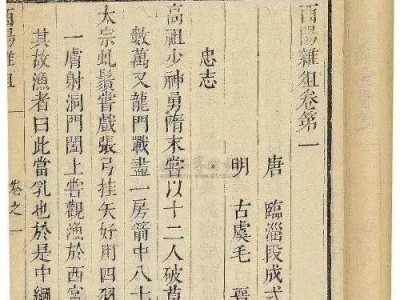 酉陽雜俎卷第一
唐 臨淄段成式
明 古虞毛
忠志
高祖少神勇隋末嘗以十二人破草
數萬又龍門戰盡一房箭中八十
太宗虬鬚嘗戲張弓挂矢好用四羽
一膚射洞門闔上嘗觀漁於西宮
其故漁者曰此當乳也於是中網
酉陽雜俎 卷之一